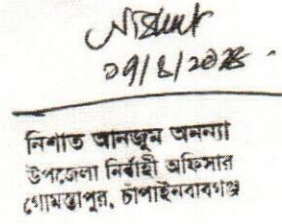 নিশাত আনজুম অনন্যা
উপজেলা নির্বাহী অফিসার
গোমস্তাপুর, চাঁপাইনবাবগঞ্জ